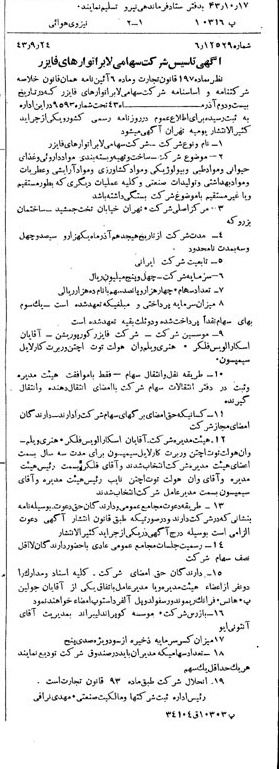 ۱۷ر۱۰ر۴۳ بدفتر ستاد فرماندهی نیرو تسلیم نمایند.
پ ۱۰۳۱۶ ۲-۱ نیروی هوائی
شماره ۱۲۵۲۹ر۶ ۲۴ر۹ر۴۳
آگهی تاسیس شرکت سهامی لابراتوارهای فایزر
نظر بماده ۱۹۷ قانون تجارت و ماده ۶ آئین نامه همان قانون خلاصه
شرکتنامه و اساسنامه شرکت سهامی لابراتوارهای فایزر که در تاریخ
بیست و دوم آذر ماه ۴۳ تحت شماره ۹۵۹۳ در این اداره
به ثبت رسیده برای اطلاع عموم در روزنامه رسمی کشور و یکی از جراید
کثیرالانتشار یومیه تهران آگهی میشود
۱- نام و نوع شرکت - شرکت سهامی لابراتوارهای فایزر
۲- موضوع شرکت: - ساخت و تهیه و بسته بندی مواد داروئی و غذای
حیوانی و مواد طبی و بیولوژیکی و مواد کشاورزی و مواد آرایشی و عطریات
و مواد بهداشتی و تولیدات صنعتی و کلیه عملیات دیگری که بطور مستقیم
و یا غیر مستقیم با موضوع شرکت بستگی داشته باشد
۳- مرکز اصلی شرکت، تهران خیابان تخت جمشید - ساختمان
بزرو که
۴- مدت شرکت از تاریخ هیجدهم آذر ماه یکهزار و سیصد و چهل
و سه بمدت نامحدود
۵- تابعیت شرکت ایرانی
۶- سرمایه شرکت - چهل و پنج میلیون ریال
۷- تعداد سهام، چهار هزار و پانصد سهم با نام ده هزار ریالی
۸- میزان سرمایه پرداختی و مبلغیکه تعهد شده است - یک سوم
بهای سهام نقداً پرداخت شده و دو ثلث بقیه تعهد شده است
۹- موسسین شرکت - شرکت فایزر کورپوریشن - آقایان
اسکار الویس فلکر، هنری ویلم وان هولت توت اچتن و ربرت کارلایل
سیمپسون.
۱۰- طریقه نقل و انتقال سهام - فقط با موافقت هیئت مدیره
و ثبت در دفتر انتقالات سهام شرکت با امضای انتقال دهنده و انتقال
گیرنده
۱۱- کسانیکه حق امضای برگهای سهام شرکت را دارند - دارندگان
امضای مجاز شرکت
۱۲- هیئت مدیره شرکت. آقایان اسکار الویس فلکر، هنری ویلم -
وان هولت توت اچتن و ربرت کارلایل سیمپسون برای مدت سه سال بسمت
اعضای هیئت مدیره شرکت انتخاب شدند و آقای فلکر بسمت رئیس هیئت
مدیره و آقای وان هولت توت اچتن نایب رئیس هیئت مدیره و آقای
سیمپسون بسمت مدیر عامل شرکت انتخاب شدند
۱۳- طریقه دعوت مجامع عمومی و دارندگان حق دعوت. بوسیله نامه
بنشانی که در شرکت دارند و در صورتیکه طبق قانون انتشار آگهی دعوت
الزامی است بوسیله درج آگهی در یکی از جراید کثیرالانتشار
۱۴- رسمیت جلسات مجامع عمومی عادی با حضور دارندگان لااقل
نصف سهام شرکت
۱۵- دارندگان حق امضای شرکت. کلیه اسناد و مدارک را
دو نفر از اعضاء هیئت مدیره و یا مدیر عامل باتفاق یکی از آقایان جولین
پ، هانس، فرانک ریموند ورسفولد ویل آلفرد استوپ امضاء خواهند نمود
۱۶- بازرس شرکت، موسسه کوپر اند لیبراند بمدیریت آقای
آنتونی ایو
۱۷- میزان کسر سرمایه ذخیره از سود ویژه صدی پنج
۱۸- تعداد سهامیکه مدیران باید در صندوق شرکت تودیع نمایند
هر یک حداقل یک سهم
۱۹. انحلال شرکت طبق ماده ۹۳ قانون تجارت است.
رئیس اداره ثبت شرکتها و مالکیت صنعتی، مهدی نراقی
پ ۱۰۳۰۳ ق ۳۴۱۰۴